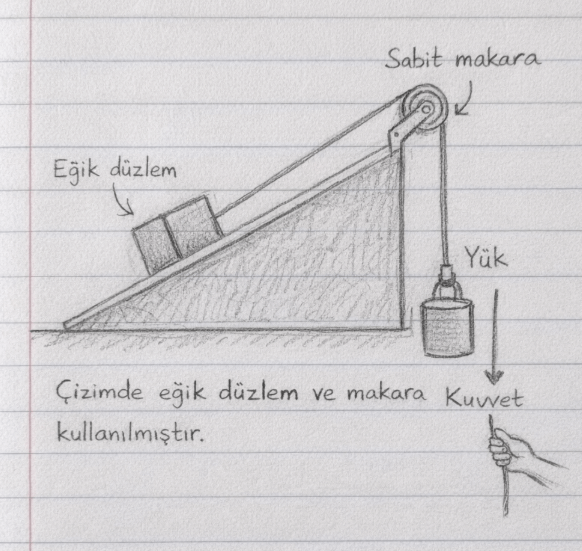 Sabit makara
Eğik düzlem
Yük
Kuvvet
Çizimde eğik düzlem ve makara
kullanılmıştır.